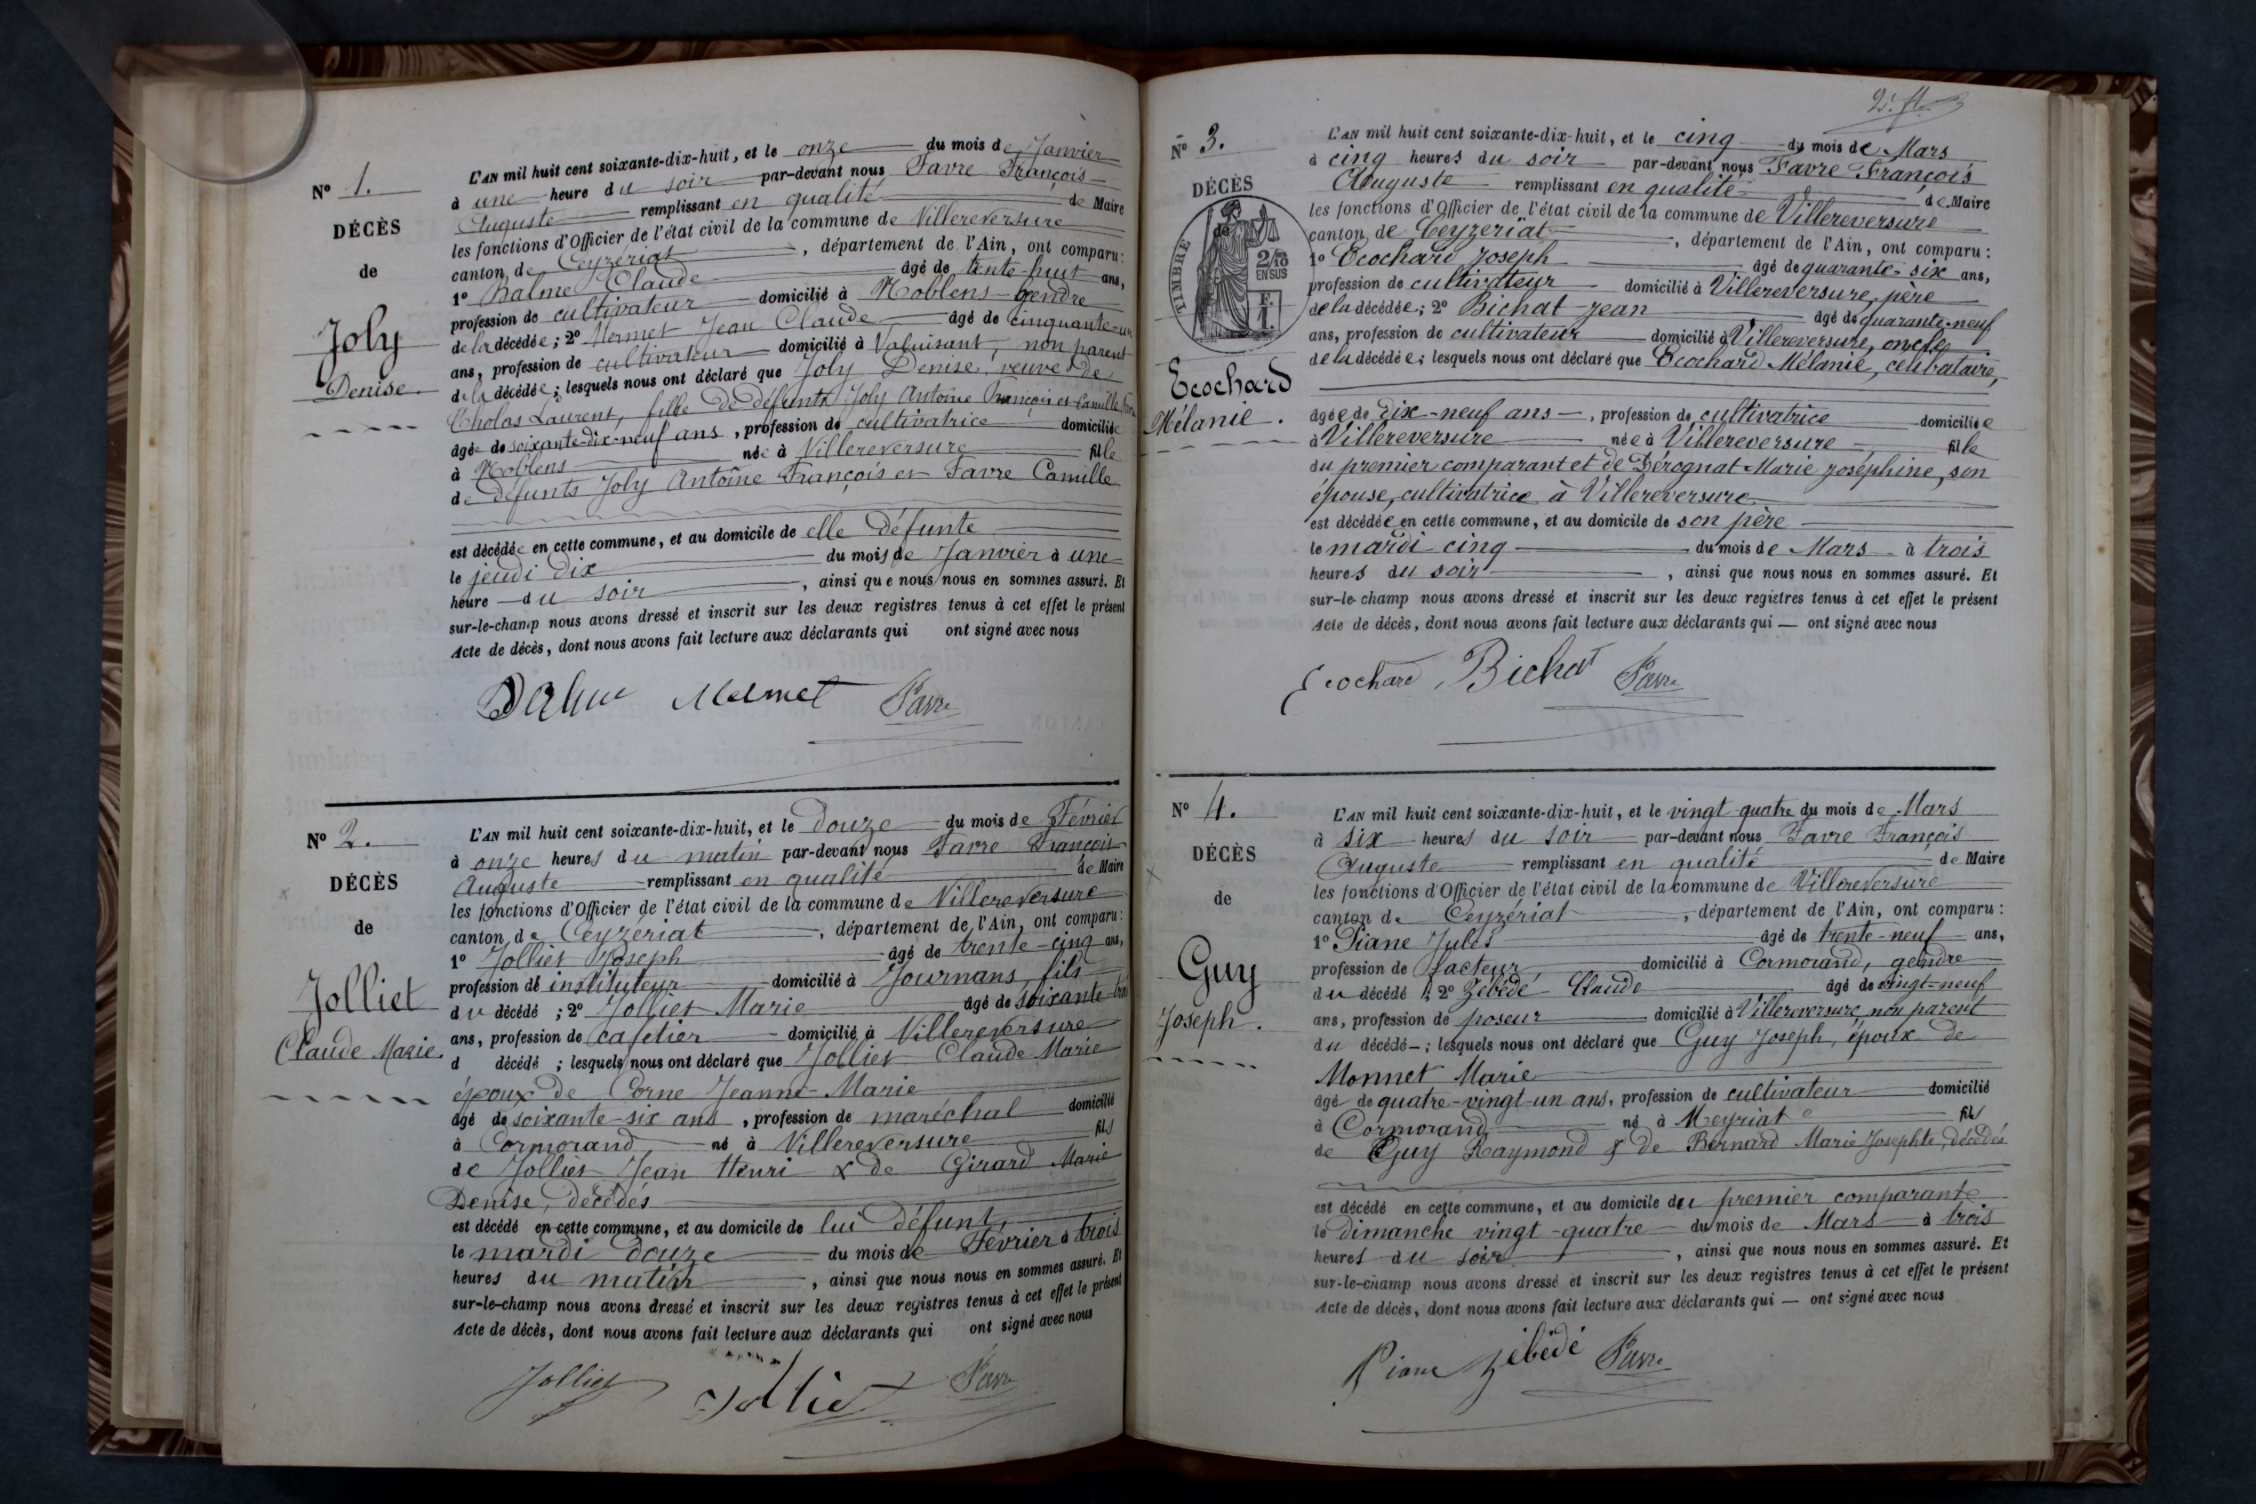 Nº 1.
DÉCÈS
de
Joly
Denise
L'AN mil huit cent soixante-dix-huit, et le onze du mois de Janvier
à une heure du soir par-devant nous Favre François
Auguste remplissant en qualité de Maire
les fonctions d'Officier de l'état civil de la commune de Villereversure
canton de Ceyzériat, département de l'Ain, ont comparu:
1º Balme Claude âgé de trente-huit ans,
profession de cultivateur domicilié à Noblens gendre
de la décédée; 2º Mermet Jean Claude âgé de cinquante-un
ans, profession de cultivateur domicilié à Valuisant, non parent
de la décédée; lesquels nous ont déclaré que Joly Denise, veuve de
Cholas Laurent, fille de défunts Joly Antoine François et Camille
âgée de soixante-dix-neuf ans, profession de cultivatrice domiciliée
à Noblens née à Villereversure fille
de défunts Joly Antoine François et Favre Camille
est décédée en cette commune, et au domicile de elle défunte
le jeudi dix du mois de Janvier à une
heure du soir, ainsi que nous nous en sommes assuré. Et
sur-le-champ nous avons dressé et inscrit sur les deux registres tenus à cet effet le présent
Acte de décès, dont nous avons fait lecture aux déclarants qui ont signé avec nous
Balme Mermet Favre
Nº 2.
DÉCÈS
de
Jolliet
Claude Marie.
L'AN mil huit cent soixante-dix-huit, et le douze du mois de Février
à onze heures du matin par-devant nous Favre François
Auguste remplissant en qualité de Maire
les fonctions d'Officier de l'état civil de la commune de Villereversure
canton de Ceyzériat, département de l'Ain, ont comparu:
1º Jolliet Joseph âgé de trente-cinq ans,
profession de instituteur domicilié à Journans, fils
du décédé; 2º Jolliet Marie âgé de soixante
ans, profession de cafetier domicilié à Villereversure
d décédé; lesquels nous ont déclaré que Jolliet Claude Marie
époux de Corne Jeanne-Marie
âgé de soixante-six ans, profession de maréchal domicilié
à Cormorand né à Villereversure fils
de Jolliet Jean Henri & de Girard Marie
Denise, décédés
est décédé en cette commune, et au domicile de lui défunt,
le mardi douze du mois de Février à trois
heures du matin, ainsi que nous nous en sommes assuré. Et
sur-le-champ nous avons dressé et inscrit sur les deux registres tenus à cet effet le présent
Acte de décès, dont nous avons fait lecture aux déclarants qui ont signé avec nous
Jolliet Jolliet Favre
Nº 3.
DÉCÈS
de
TIMBRE
2/10
EN SUS
Ecochard
Mélanie.
L'AN mil huit cent soixante-dix-huit, et le cinq du mois de Mars
à cinq heures du soir par-devant nous Favre François
Auguste remplissant en qualité de Maire
les fonctions d'Officier de l'état civil de la commune de Villereversure
canton de Ceyzériat, département de l'Ain, ont comparu:
1º Ecochard Joseph âgé de quarante-six ans,
profession de cultivateur domicilié à Villereversure, père
de la décédée; 2º Bichat Jean âgé de quarante-neuf
ans, profession de cultivateur domicilié à Villereversure, oncle
de la décédée; lesquels nous ont déclaré que Ecochard Mélanie, célibataire,
âgée de dix-neuf ans, profession de cultivatrice domiciliée
à Villereversure née à Villereversure fille
du premier comparant et de Dérognat Marie Joséphine, son
épouse, cultivatrice à Villereversure
est décédée en cette commune, et au domicile de son père
le mardi cinq du mois de Mars à trois
heures du soir, ainsi que nous nous en sommes assuré. Et
sur-le-champ nous avons dressé et inscrit sur les deux registres tenus à cet effet le présent
Acte de décès, dont nous avons fait lecture aux déclarants qui — ont signé avec nous
Ecochard Bichat Favre
Nº 4.
DÉCÈS
de
Guy
Joseph.
L'AN mil huit cent soixante-dix-huit, et le vingt-quatre du mois de Mars
à six heures du soir par-devant nous Favre François
Auguste remplissant en qualité de Maire
les fonctions d'Officier de l'état civil de la commune de Villereversure
canton de Ceyzériat, département de l'Ain, ont comparu:
1º Piane Jules âgé de trente-neuf ans,
profession de facteur domicilié à Cormorand, gendre
du décédé; 2º Zébédé Claude âgé de vingt-neuf
ans, profession de poseur domicilié à Villereversure, non parent
du décédé; lesquels nous ont déclaré que Guy Joseph, époux de
Monnet Marie
âgé de quatre-vingt-un ans, profession de cultivateur domicilié
à Cormorand né à Meyriat fils
de Guy Raymond & de Bernard Marie Josephte, décédés
est décédé en cette commune, et au domicile du premier comparant
le dimanche vingt-quatre du mois de Mars à trois
heures du soir, ainsi que nous nous en sommes assuré. Et
sur-le-champ nous avons dressé et inscrit sur les deux registres tenus à cet effet le présent
Acte de décès, dont nous avons fait lecture aux déclarants qui — ont signé avec nous
Piane Zébédé Favre